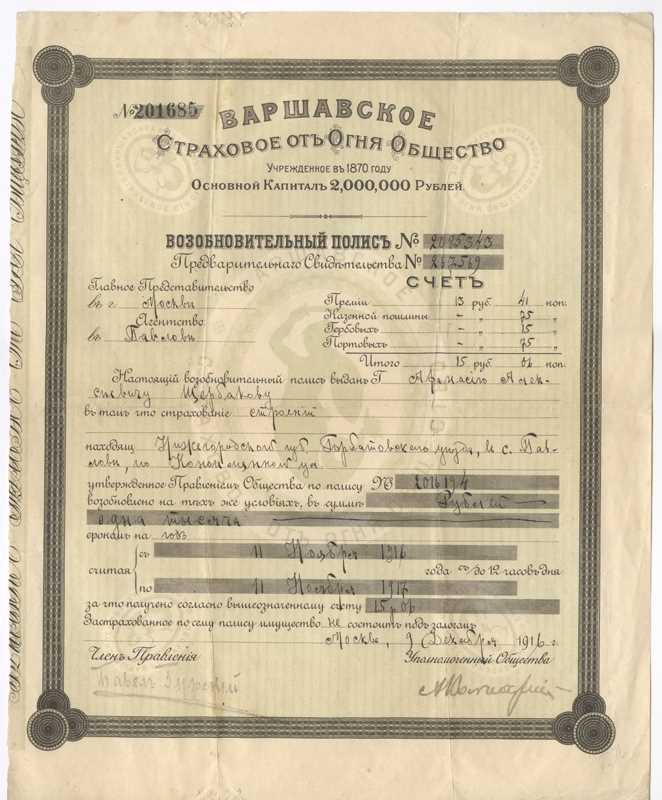 № 201685
ВАРШАВСКОЕ
СТРАХОВОЕ ОТЪ ОГНЯ ОБЩЕСТВО
УЧРЕЖДЕННОЕ ВЪ 1870 ГОДУ
ОСНОВНОЙ КАПИТАЛЪ 2,000,000 РУБЛЕЙ.
ВОЗОБНОВИТЕЛЬНЫЙ ПОЛИСЪ №
Предварительнаго Свидѣтельства №
СЧЕТЪ
Главное Представительство
въ г. Москвѣ
Агентство
въ Павловѣ
Преміи 13 руб. 41 коп.
Казенной пошлины - „ 75 „
Гербовыхъ - „ 15 „
Портовыхъ - „ 75 „
Итого 15 руб. 06 коп.
Настоящій возобновительный полисъ выданъ Г. Афанасію Алек-
сѣевичу Щербакову
въ томъ что страхованіе строеній
находящ Нижегородской губ. Горбатовскаго уѣзда, въ с. Пав-
ловѣ, по ул.
утвержденное Правленіемъ Общества по полису № 2016194
возобновлено на тѣхъ же условіяхъ, въ суммѣ Рублей
одна тысяча
срокомъ на годъ
считая
съ 11 Ноября 1916
по 11 Ноября 1917
года съ/до 12 часовъ дня
за что получено согласно вышеозначенному счету 15 р. 06
Застрахованное по сему полису имущество не состоитъ подъ залогомъ
Москва, 9 Декабря 1916 г.
Членъ Правленія
Уполномоченный Общества